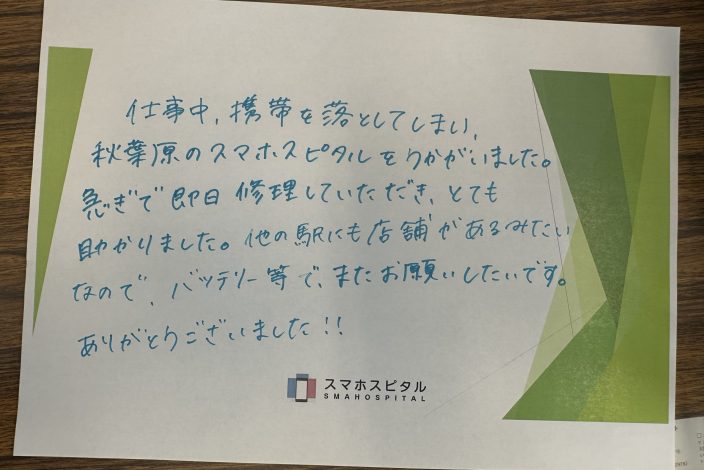 仕事中、携帯を落としてしまい、
秋葉原のスマホスピタルをうかがいました。
急ぎで即日修理していただき、とても
助かりました。他の駅にも店舗があるみたい
なので、バッテリー等で、またお願いしたいです。
ありがとうございました!!
スマホスピタル
SMAHOSPITAL